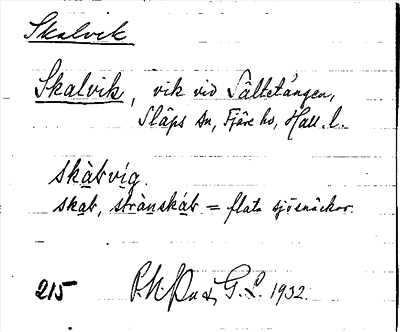 Skalvik
Skalvik, vik vid Tåltetången,
Släps sn, Fjäre hd, Hall. l.
skàbvíg
skab, strànskáb = flata sjösnäckor.
215 G. L. 1932.